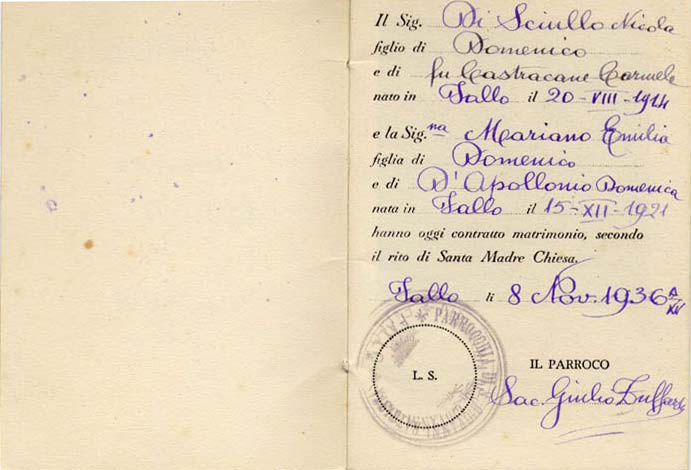 Il Sig. Di Sciullo Nicola
figlio di Domenico
e di fu Castracane Carmela
nato in Fallo il 20-VIII-1914
e la Sig.na Mariano Emilia
figlia di Domenico
e di D'Apollonio Domenica
nata in Fallo il 15-XII-1921
hanno oggi contratto matrimonio, secondo
il rito di Santa Madre Chiesa.
Fallo li 8 Nov. 1936
L. S.
PARROCCHIA DI S.
IL PARROCO
Sac. Giulio